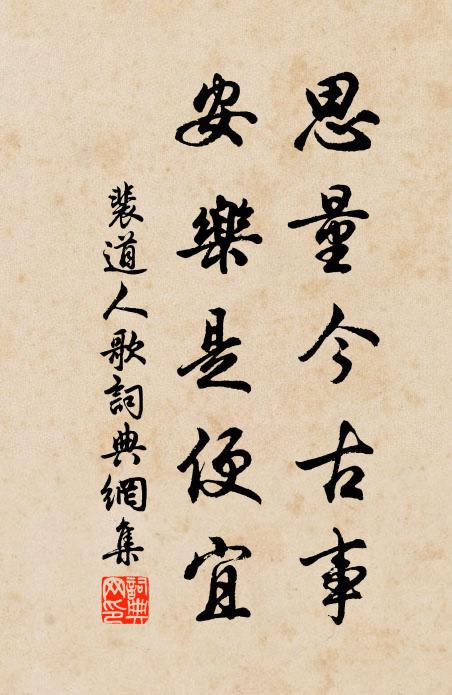 思量今古事
安樂是便宜
裴道人歌詞典網集
詞典
网印